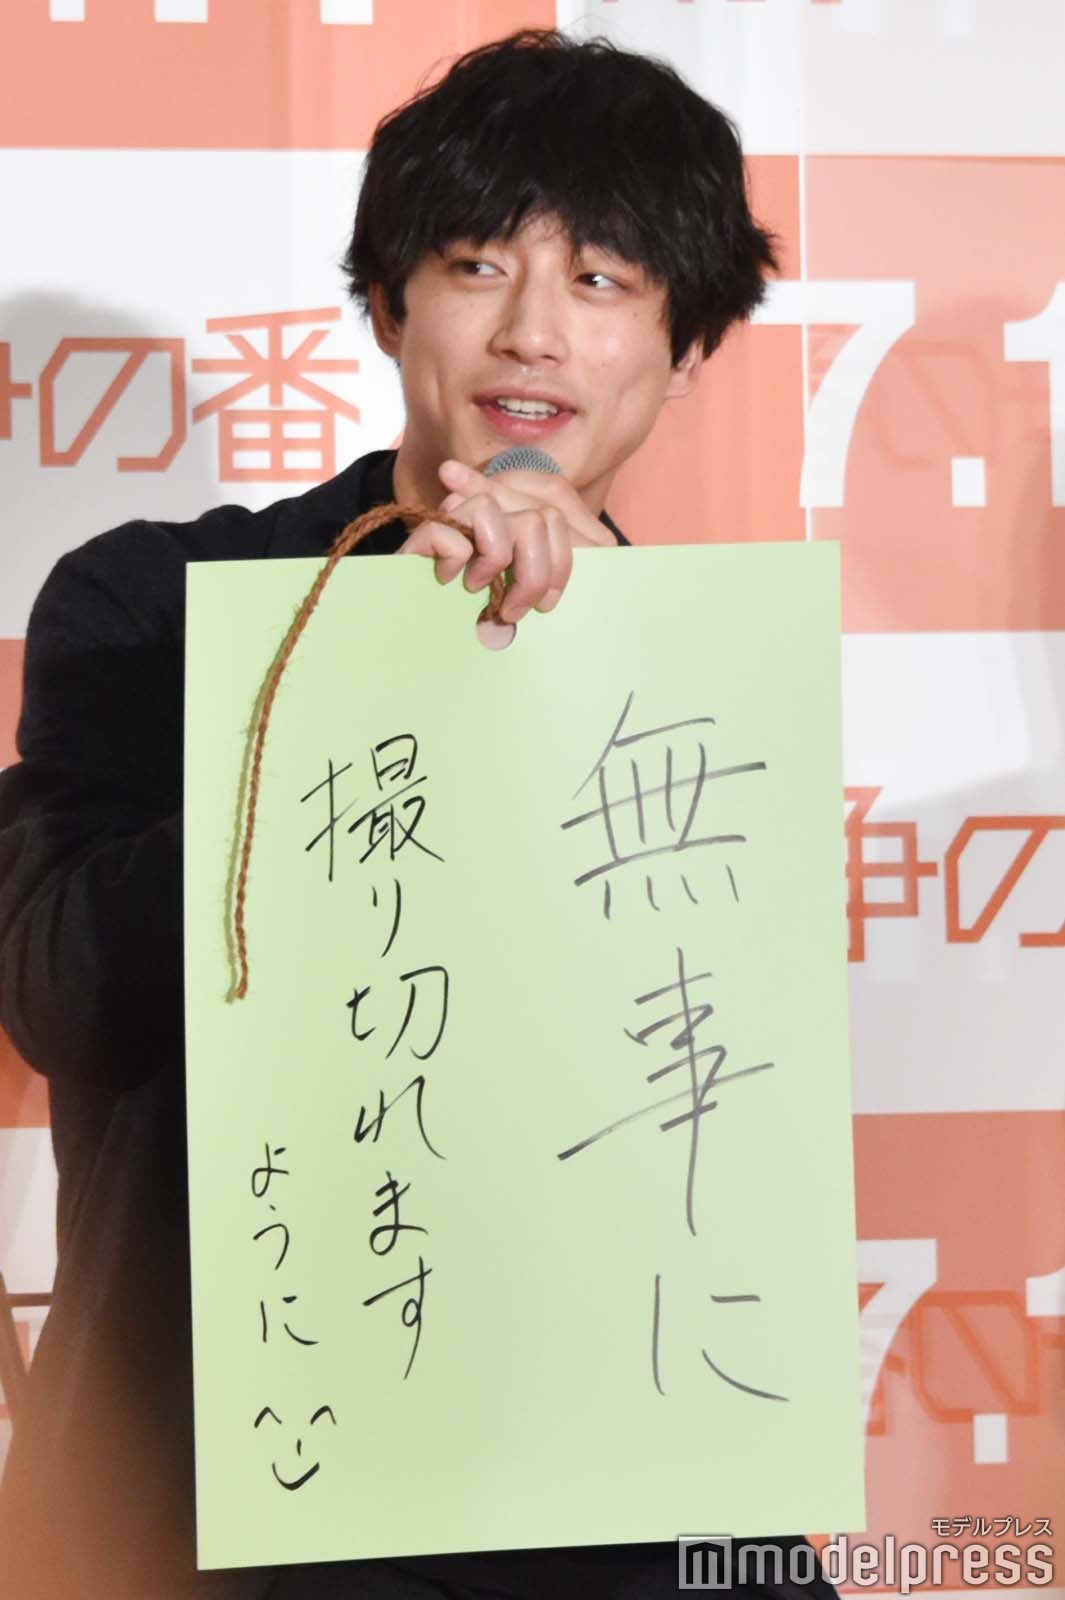 無事に
撮り切れます
ように
の番
7.1
争の
7.1
モデルプレス
modelpress